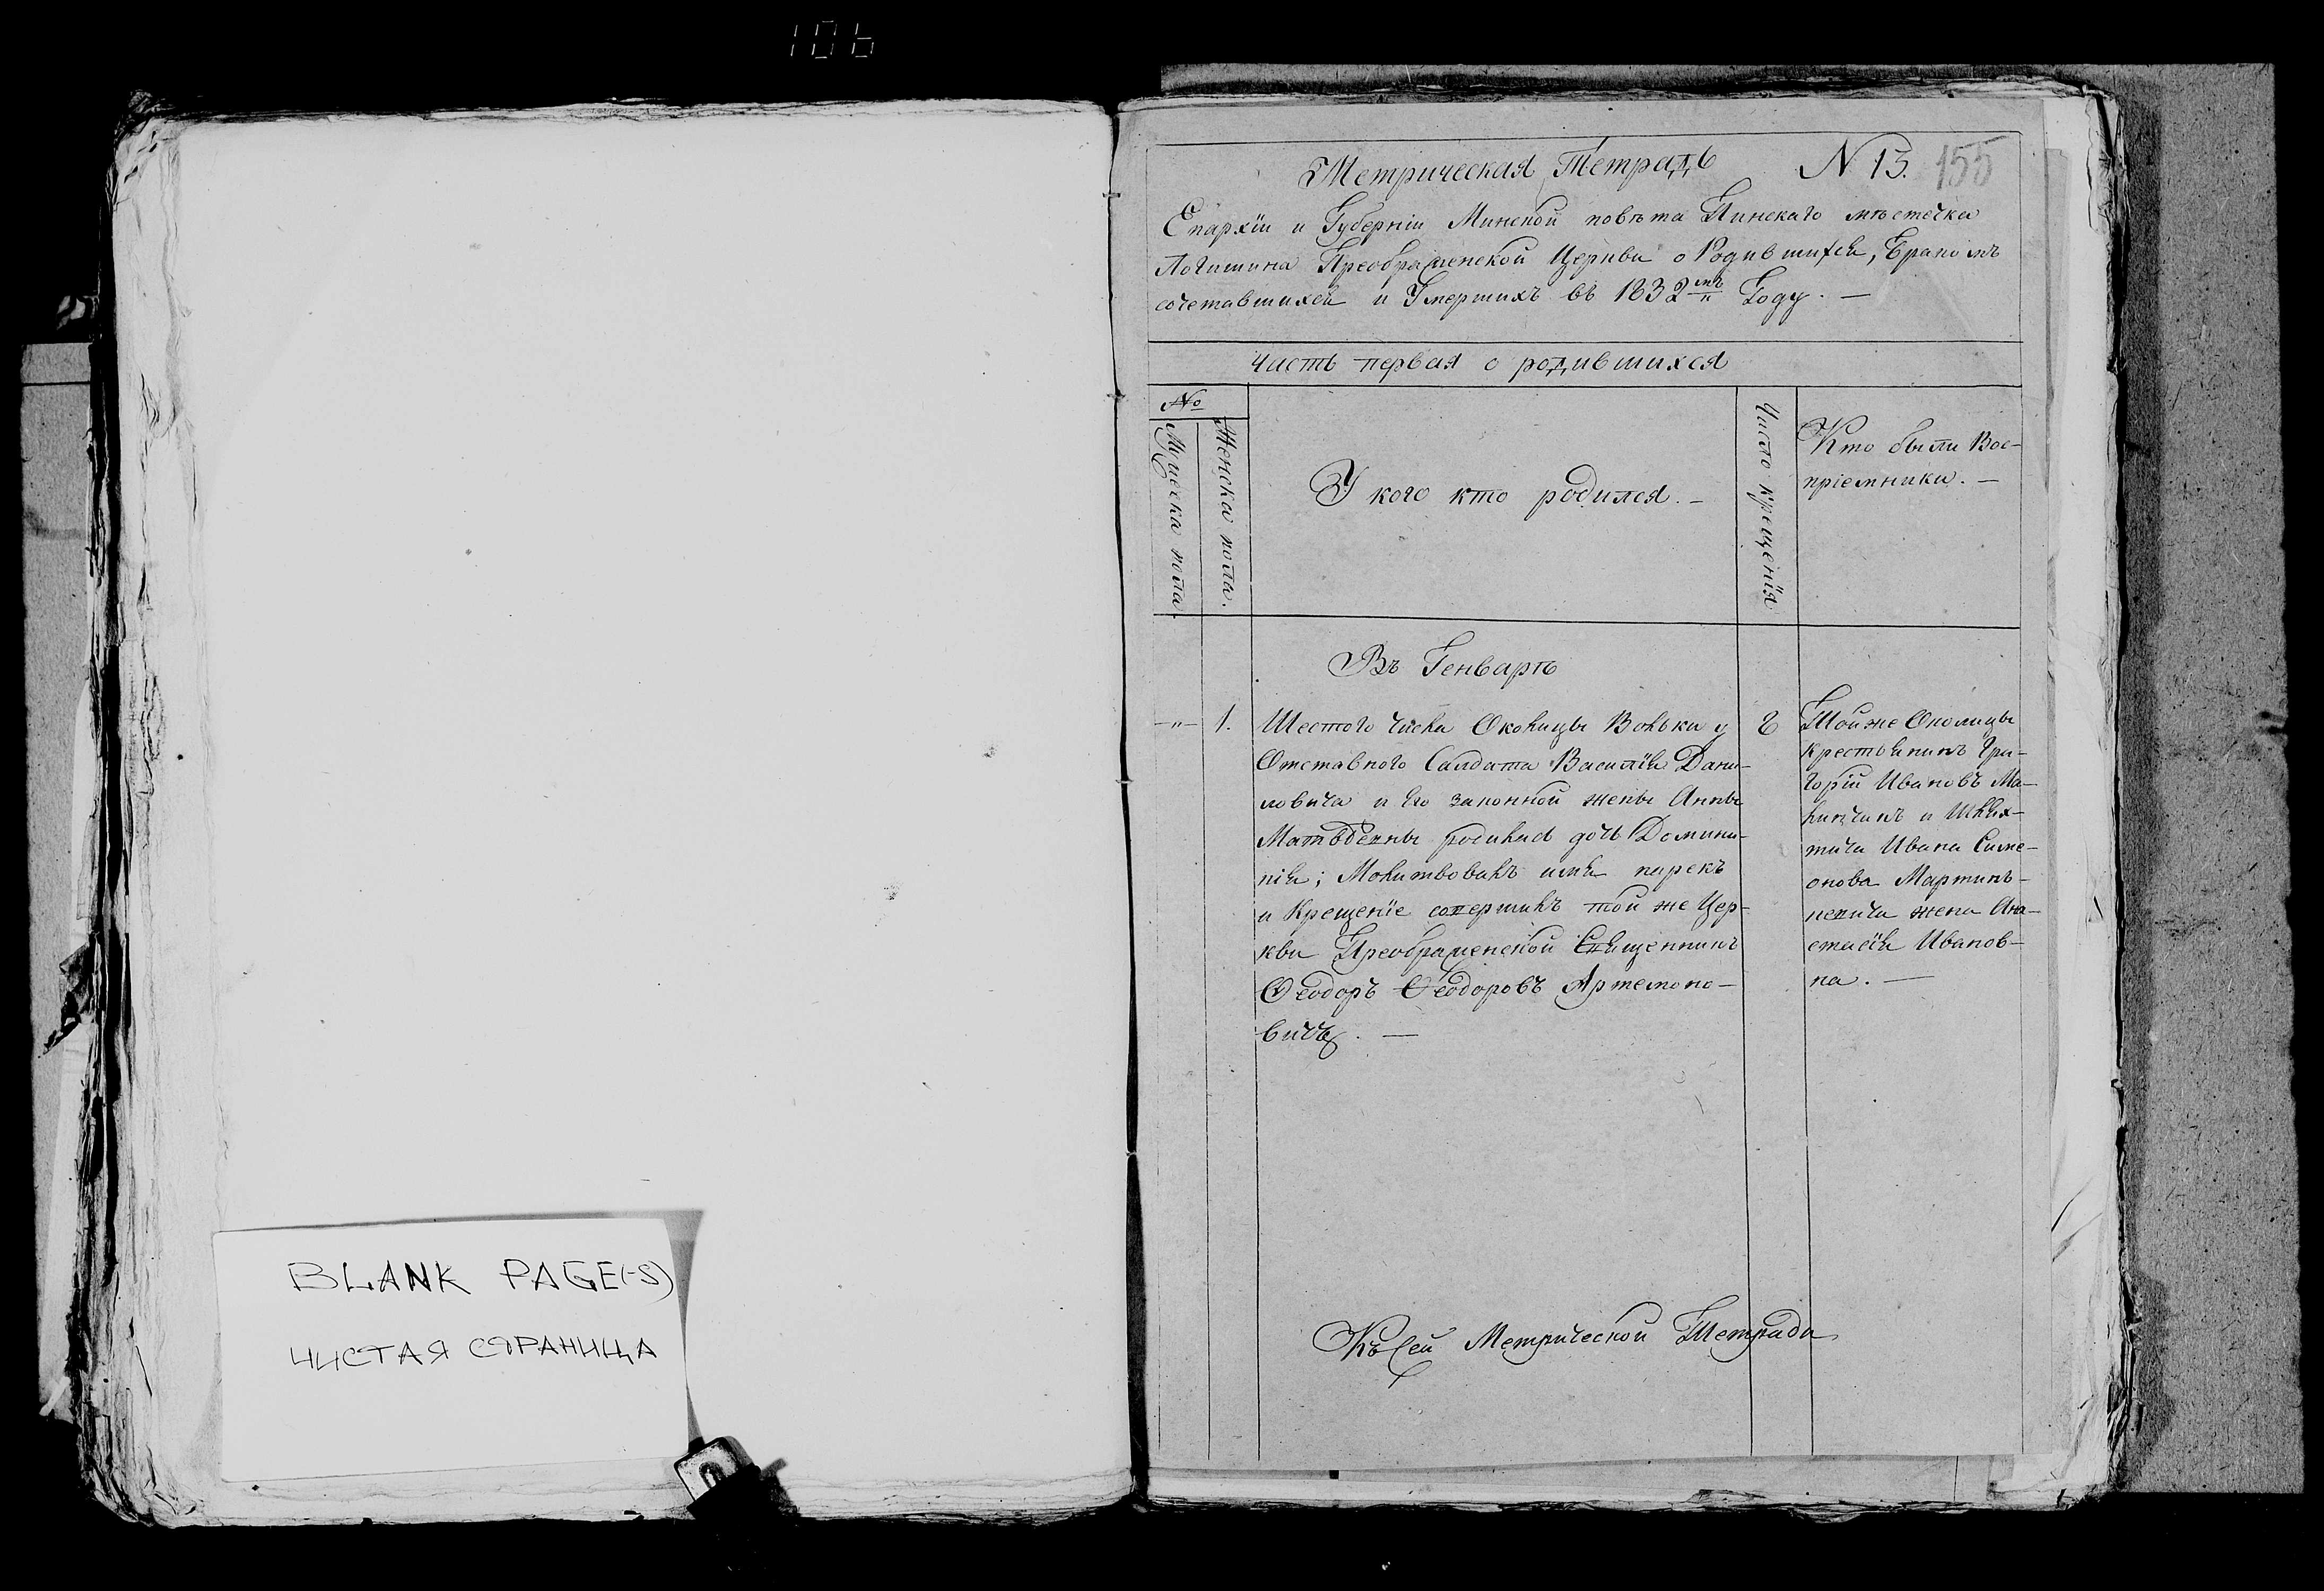 106
BLANK PAGE(-S)
ЧИСТАЯ СТРАНИЦА
Метрическая Тетрадь N 13. 155
Епархіи и Губерніи Минской повѣта Пинскаго мѣстечка
Логишина Преображенской Церкви о Родившихся, Бракомъ
сочетавшихся и Умершихъ въ 1832мъ Году. —
Часть первая о родившихся
№
Мужеска пола
Женска пола.
У кого кто родился. —
Число крещенія
Кто были Вос-
пріемники. —
Въ Генварѣ
—"— 1.
Шестого числа Околицы Волька у
Отставного Салдата Василія Дани-
ловича и Его законной жены Анны
Матвѣевны родилась дочь Домини-
кія; Молитвовалъ имя нарекъ
и Крещеніе совершилъ той же Цер-
кви Преображенской Священникъ
Ѳеодоръ Ѳеодоровъ Артемоно-
вичъ. —
Той же Околицы
Крестьянинъ Гри-
горій Ивановъ Ма-
и Шлях-
тича Ивана Симе-
онова Мартин-
жена Ана-
стасія Иванов-
на. —
Къ сей Метрической Тетради